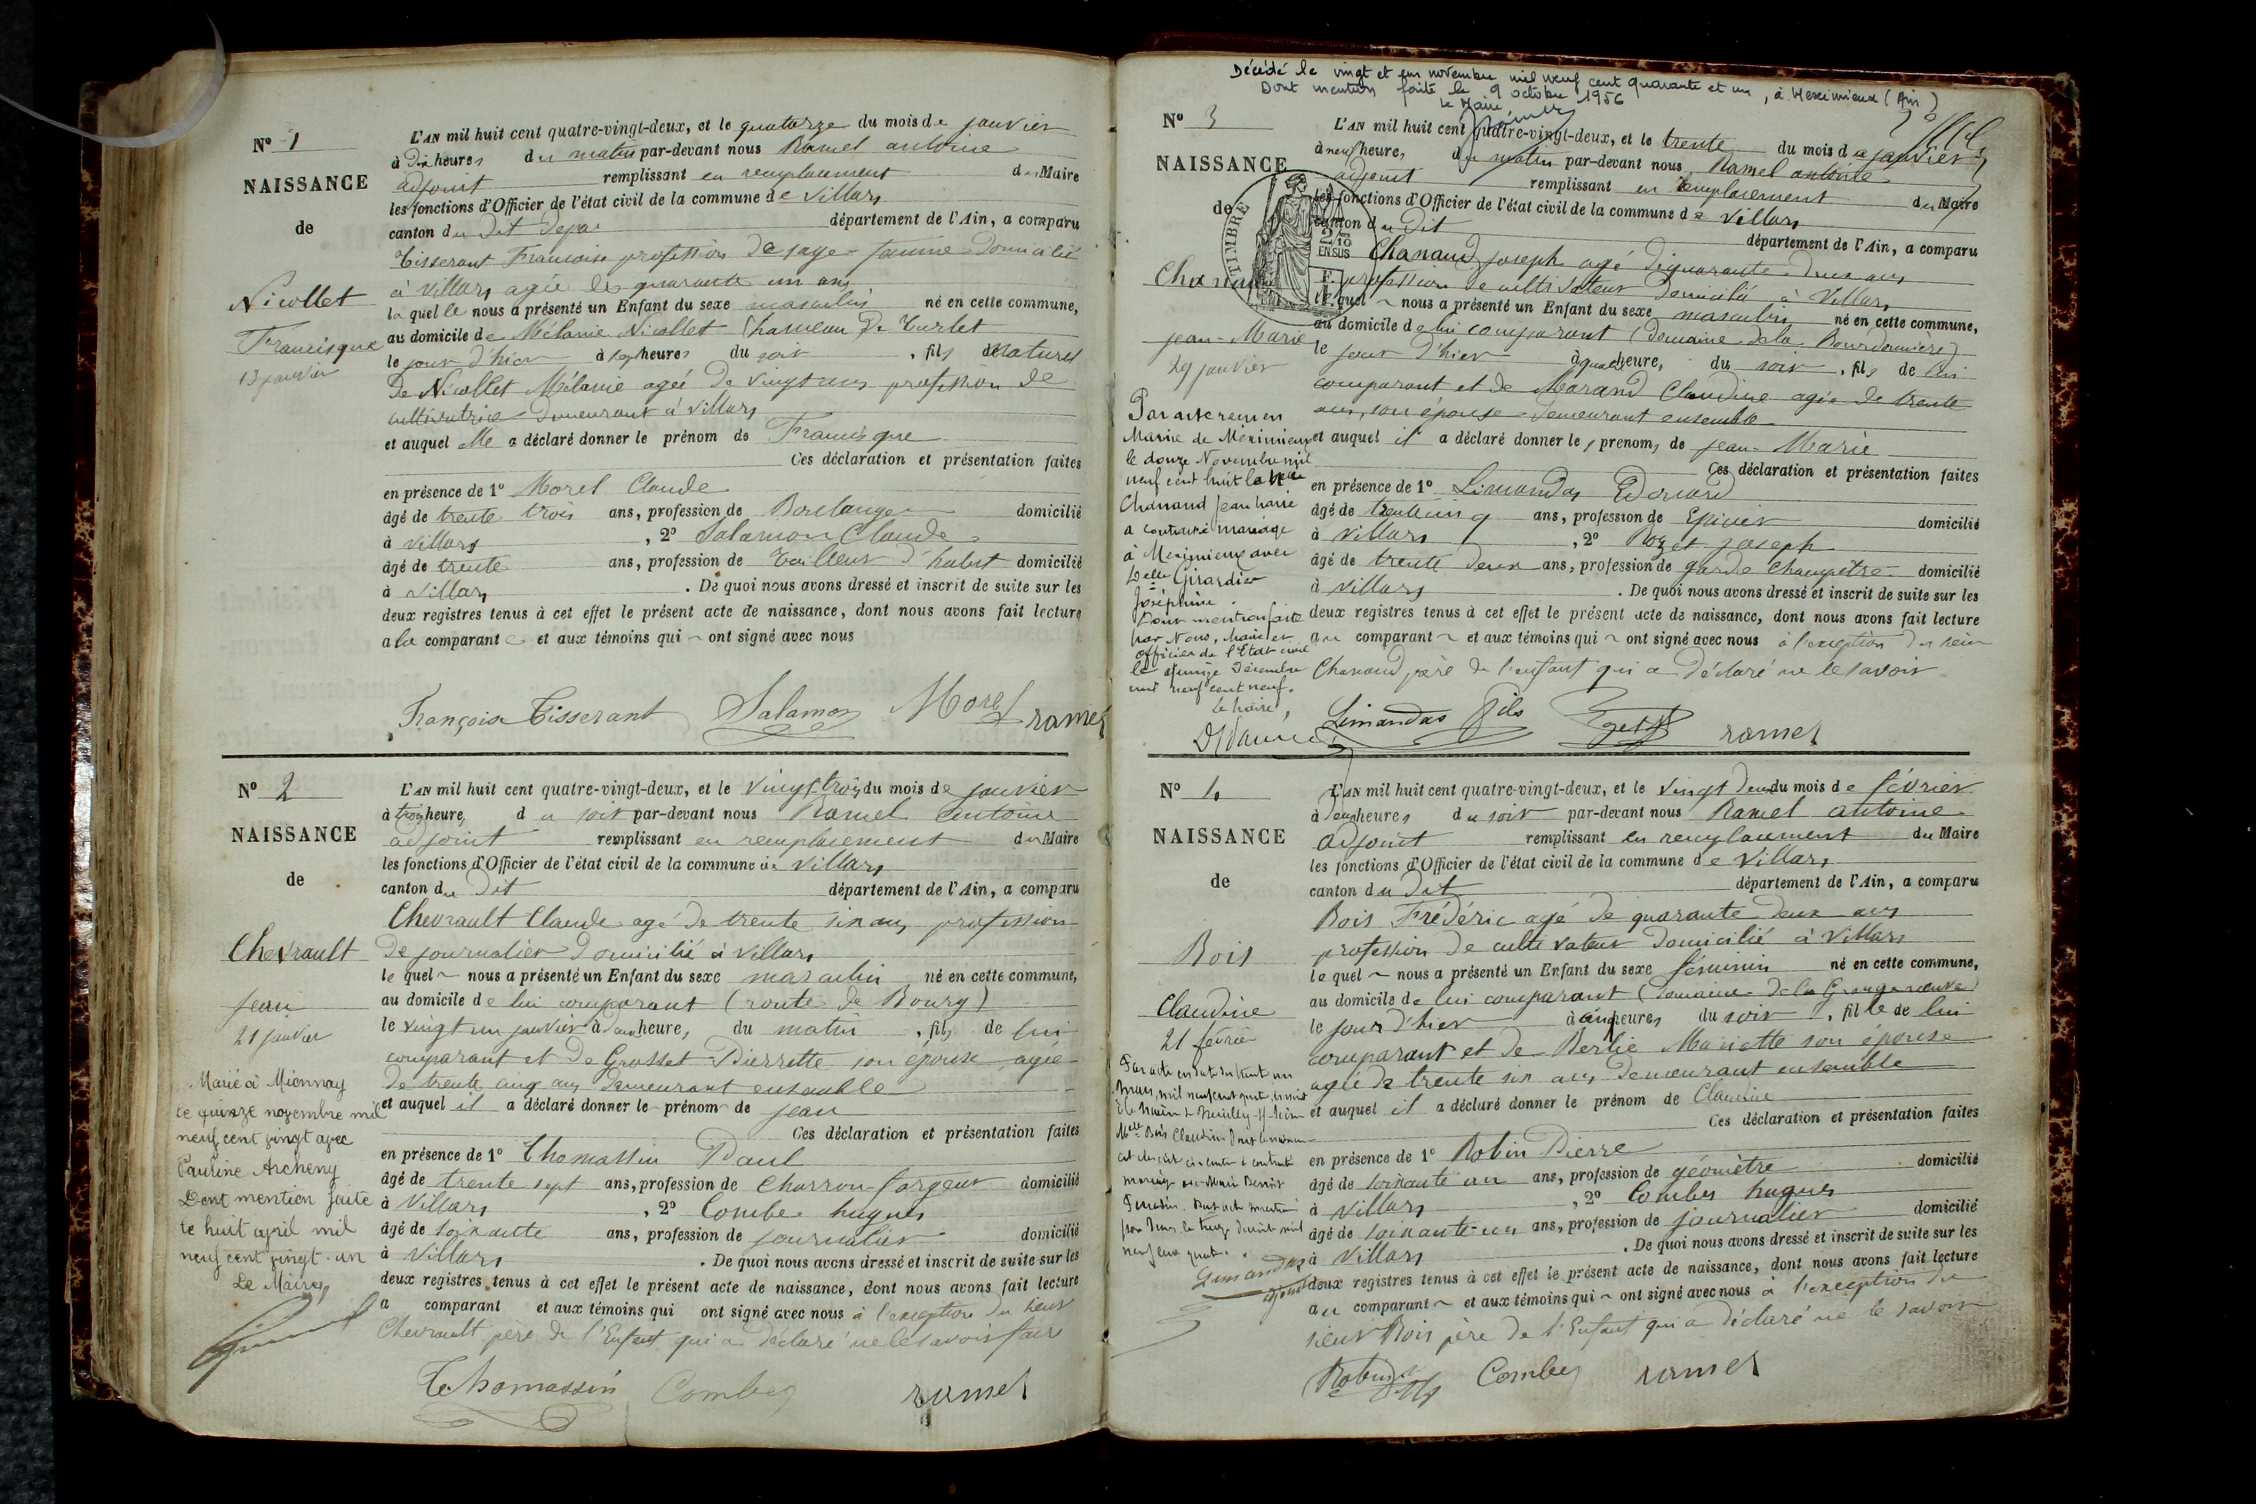 N° 1
NAISSANCE
de
Nicollet
Francisque
13 janvier
L'AN mil huit cent quatre-vingt-deux, et le quatorze du mois de janvier
à dix heures du matin par-devant nous Ramel antoine
adjoint remplissant en remplacement du Maire
les fonctions d'Officier de l'état civil de la commune de Villars
canton du dit département de l'Ain, a comparu
Tisserant Françoise profession de sage-femme domicilié
à Villars agée de quarante un ans
la quelle nous a présenté un Enfant du sexe masculin né en cette commune,
au domicile de Mélanie Nicollet (hameau de Turlet
le jour d'hier à sept heures du soir, fils naturel
de Nicollet Mélanie agée de vingt ans profession de
cultivatrice demeurant à Villars
et auquel elle a déclaré donner le prénom de Francisque
Ces déclaration et présentation faites
en présence de 1° Morel Claude
âgé de trente trois ans, profession de Boulanger domicilié
à Villars, 2° Salamon Claude
âgé de trente ans, profession de Tailleur d'habit domicilié
à Villars. De quoi nous avons dressé et inscrit de suite sur les
deux registres tenus à cet effet le présent acte de naissance, dont nous avons fait lecture
a la comparante et aux témoins qui ont signé avec nous
Françoise Tisserant Salamon Morel ramel
N° 2
NAISSANCE
de
Chevrault
Jean
21 janvier
Marié à Mionnay
le quinze novembre mil
neuf cent vingt avec
Pauline Archeny
Dont mention faite
le huit avril mil
neuf cent vingt-un
Le Maire,
L'AN mil huit cent quatre-vingt-deux, et le vingt-trois du mois de janvier
à trois heures du soir par-devant nous Ramel antoine
adjoint remplissant en remplacement du Maire
les fonctions d'Officier de l'état civil de la commune de Villars
canton du dit département de l'Ain, a comparu
Chevrault Claude agé de trente six ans profession
de journalier domicilié à Villars
le quel nous a présenté un Enfant du sexe masculin né en cette commune,
au domicile de lui comparant (route de Bourg)
le vingt un janvier à deux heures du matin, fils de lui
comparant et de Grosset Pierrette son épouse agée
de trente cinq ans demeurant ensemble
et auquel il a déclaré donner le prénom de jean
Ces déclaration et présentation faites
en présence de 1° Thomassin Paul
âgé de trente sept ans, profession de Charron-forgeur domicilié
à Villars, 2° Combe hugues
âgé de soixante ans, profession de journalier domicilié
à Villars. De quoi nous avons dressé et inscrit de suite sur les
deux registres tenus à cet effet le présent acte de naissance, dont nous avons fait lecture
a comparant et aux témoins qui ont signé avec nous à l'exception du sieur
Chevrault père de l'Enfant qui a déclaré ne le savoir faire
Thomassin Combe ramel
Décédé le vingt et un novembre mil neuf cent quarante et un, à Meximieux (Ain)
Dont mention faite le 9 octobre 1956
Le Maire,
N° 3
NAISSANCE
de
TIMBRE
Chanaud
jean-Marie
29 janvier
Par acte remis
Mairie de Meximieux
le douze Novembre mil
neuf cent huit
Chanaud Jean Marie
a contracté mariage
à Meximieux avec
Delle Girardier
Joséphine.
Dont mention faite
par Nous, Maire et
officier de l'Etat civil
le quinze Décembre
mil neuf cent neuf.
Le Maire,
L'AN mil huit cent quatre-vingt-deux, et le trente du mois de janvier
à neuf heures du matin par-devant nous Ramel antoine
adjoint remplissant en remplacement du Maire
les fonctions d'Officier de l'état civil de la commune de Villars
canton du dit département de l'Ain, a comparu
Chanaud joseph agé de quarante-deux ans
profession de cultivateur domicilié à Villars
le quel nous a présenté un Enfant du sexe masculin né en cette commune,
au domicile de lui comparant (domaine de la Bourdonnière)
le jour d'hier à quatre heures du soir, fils de lui
comparant et de Marand Claudine agée de trente
ans, son épouse demeurant ensemble
et auquel il a déclaré donner les prénoms de jean-Marie
Ces déclaration et présentation faites
en présence de 1° Limandas Edouard
âgé de trente cinq ans, profession de Epicier domicilié
à Villars, 2° Roget joseph
âgé de trente deux ans, profession de garde champêtre domicilié
à Villars. De quoi nous avons dressé et inscrit de suite sur les
deux registres tenus à cet effet le présent acte de naissance, dont nous avons fait lecture
au comparant et aux témoins qui ont signé avec nous à l'exception du sieur
Chanaud père de l'enfant qui a déclaré ne le savoir
Limandas fils Roget ramel
N° 4
NAISSANCE
de
Bois
Claudine
21 février
L'AN mil huit cent quatre-vingt-deux, et le vingt deux du mois de février
à deux heures du soir par-devant nous Ramel antoine
adjoint remplissant en remplacement du Maire
les fonctions d'Officier de l'état civil de la commune de Villars
canton du dit département de l'Ain, a comparu
Bois Frédéric agé de quarante deux ans
profession de cultivateur domicilié à Villars
le quel nous a présenté un Enfant du sexe féminin né en cette commune,
au domicile de lui comparant (domaine de la Grange neuve)
le jour d'hier à cinq heures du soir, fille de lui
comparant et de Berlie Mariette son épouse
agée de trente six ans demeurant ensemble
et auquel il a déclaré donner le prénom de Claudine
Ces déclaration et présentation faites
en présence de 1° Robin Pierre
âgé de soixante un ans, profession de géomètre domicilié
à Villars, 2° Combes hugues
âgé de soixante-un ans, profession de journalier domicilié
à Villars. De quoi nous avons dressé et inscrit de suite sur les
deux registres tenus à cet effet le présent acte de naissance, dont nous avons fait lecture
au comparant et aux témoins qui ont signé avec nous à l'exception du
sieur Bois père de l'Enfant qui a déclaré ne le savoir
Robin Combe ramel